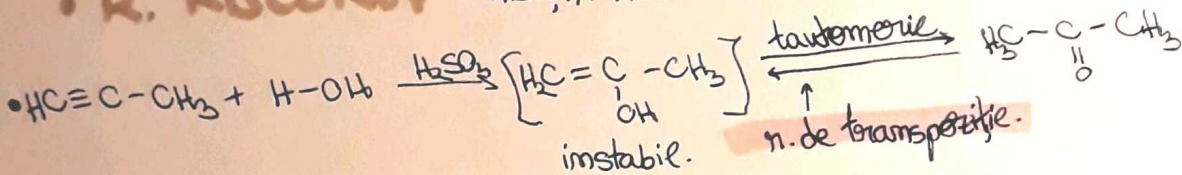 •HC≡C-CH3 + H-OH → [H2C=C-CH3] tautomerie ⇌ H3C-C-CH3
OH
O
instabil.
r. de transpoziție.